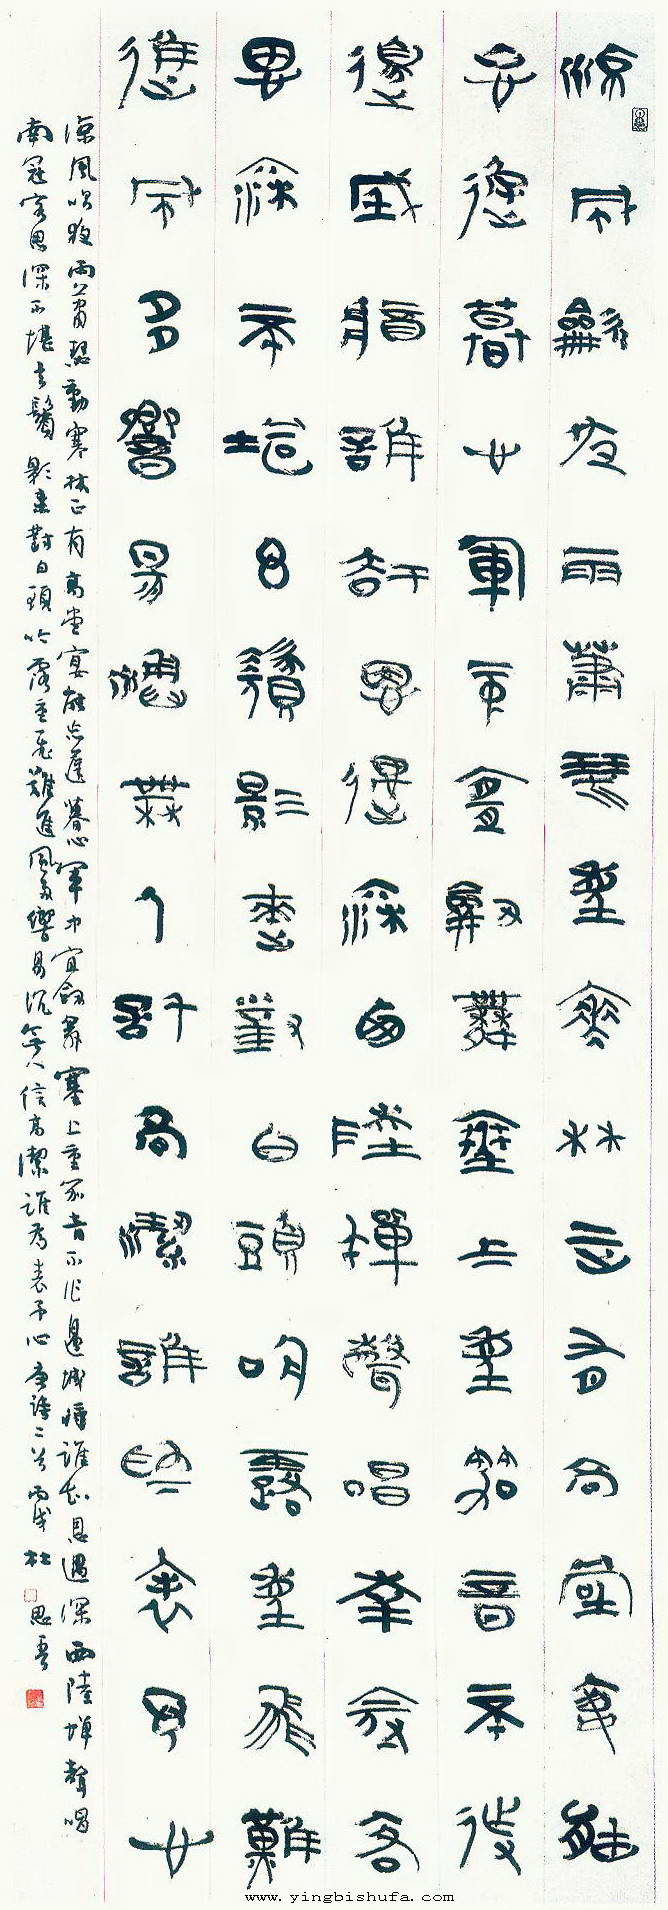 涼風吹夜雨蕭瑟動寒林正有高堂宴能
忘遲暮心軍中宜劍舞塞上重笳音不作
邊城將誰知恩遇深西陸蟬聲唱南冠客
思深不堪玄鬢影來對白頭吟露重飛難
進風多響易沉無人信高潔誰為表予心
涼風吹夜雨蕭瑟動寒林正有高堂宴能忘遲暮心軍中宜劍舞塞上重笳音不作邊城將誰知恩遇深西陸蟬聲唱
南冠客思深不堪玄鬢影來對白頭吟露重飛難進風多響易沉無人信高潔誰為表予心唐詩二首丙戌杜思
www.yingbishufa.com